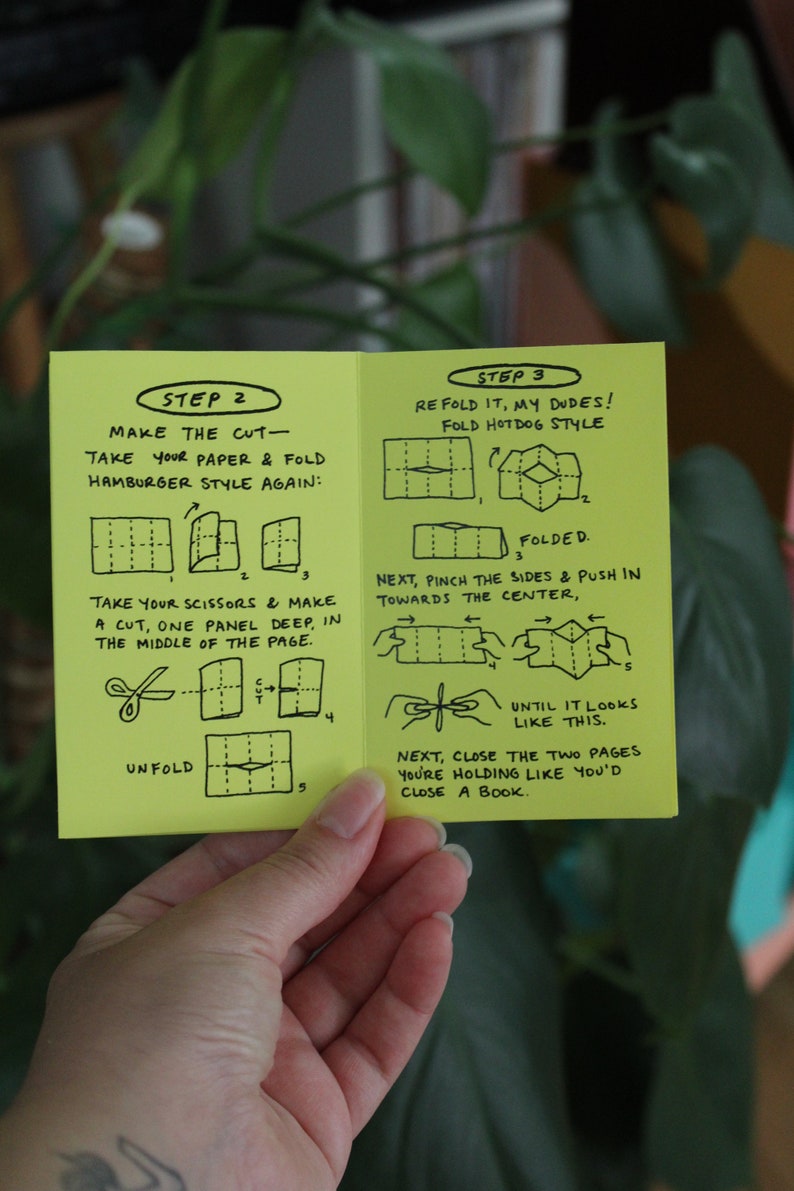 STEP 2
MAKE THE CUT—
TAKE YOUR PAPER & FOLD
HAMBURGER STYLE AGAIN:
1
2
3
TAKE YOUR SCISSORS & MAKE
A CUT, ONE PANEL DEEP, IN
THE MIDDLE OF THE PAGE.
CUT
4
UNFOLD
5
STEP 3
REFOLD IT, MY DUDES!
FOLD HOTDOG STYLE
1
2
3
FOLDED.
NEXT, PINCH THE SIDES & PUSH IN
TOWARDS THE CENTER,
4
5
UNTIL IT LOOKS
LIKE THIS.
NEXT, CLOSE THE TWO PAGES
YOU'RE HOLDING LIKE YOU'D
CLOSE A BOOK.